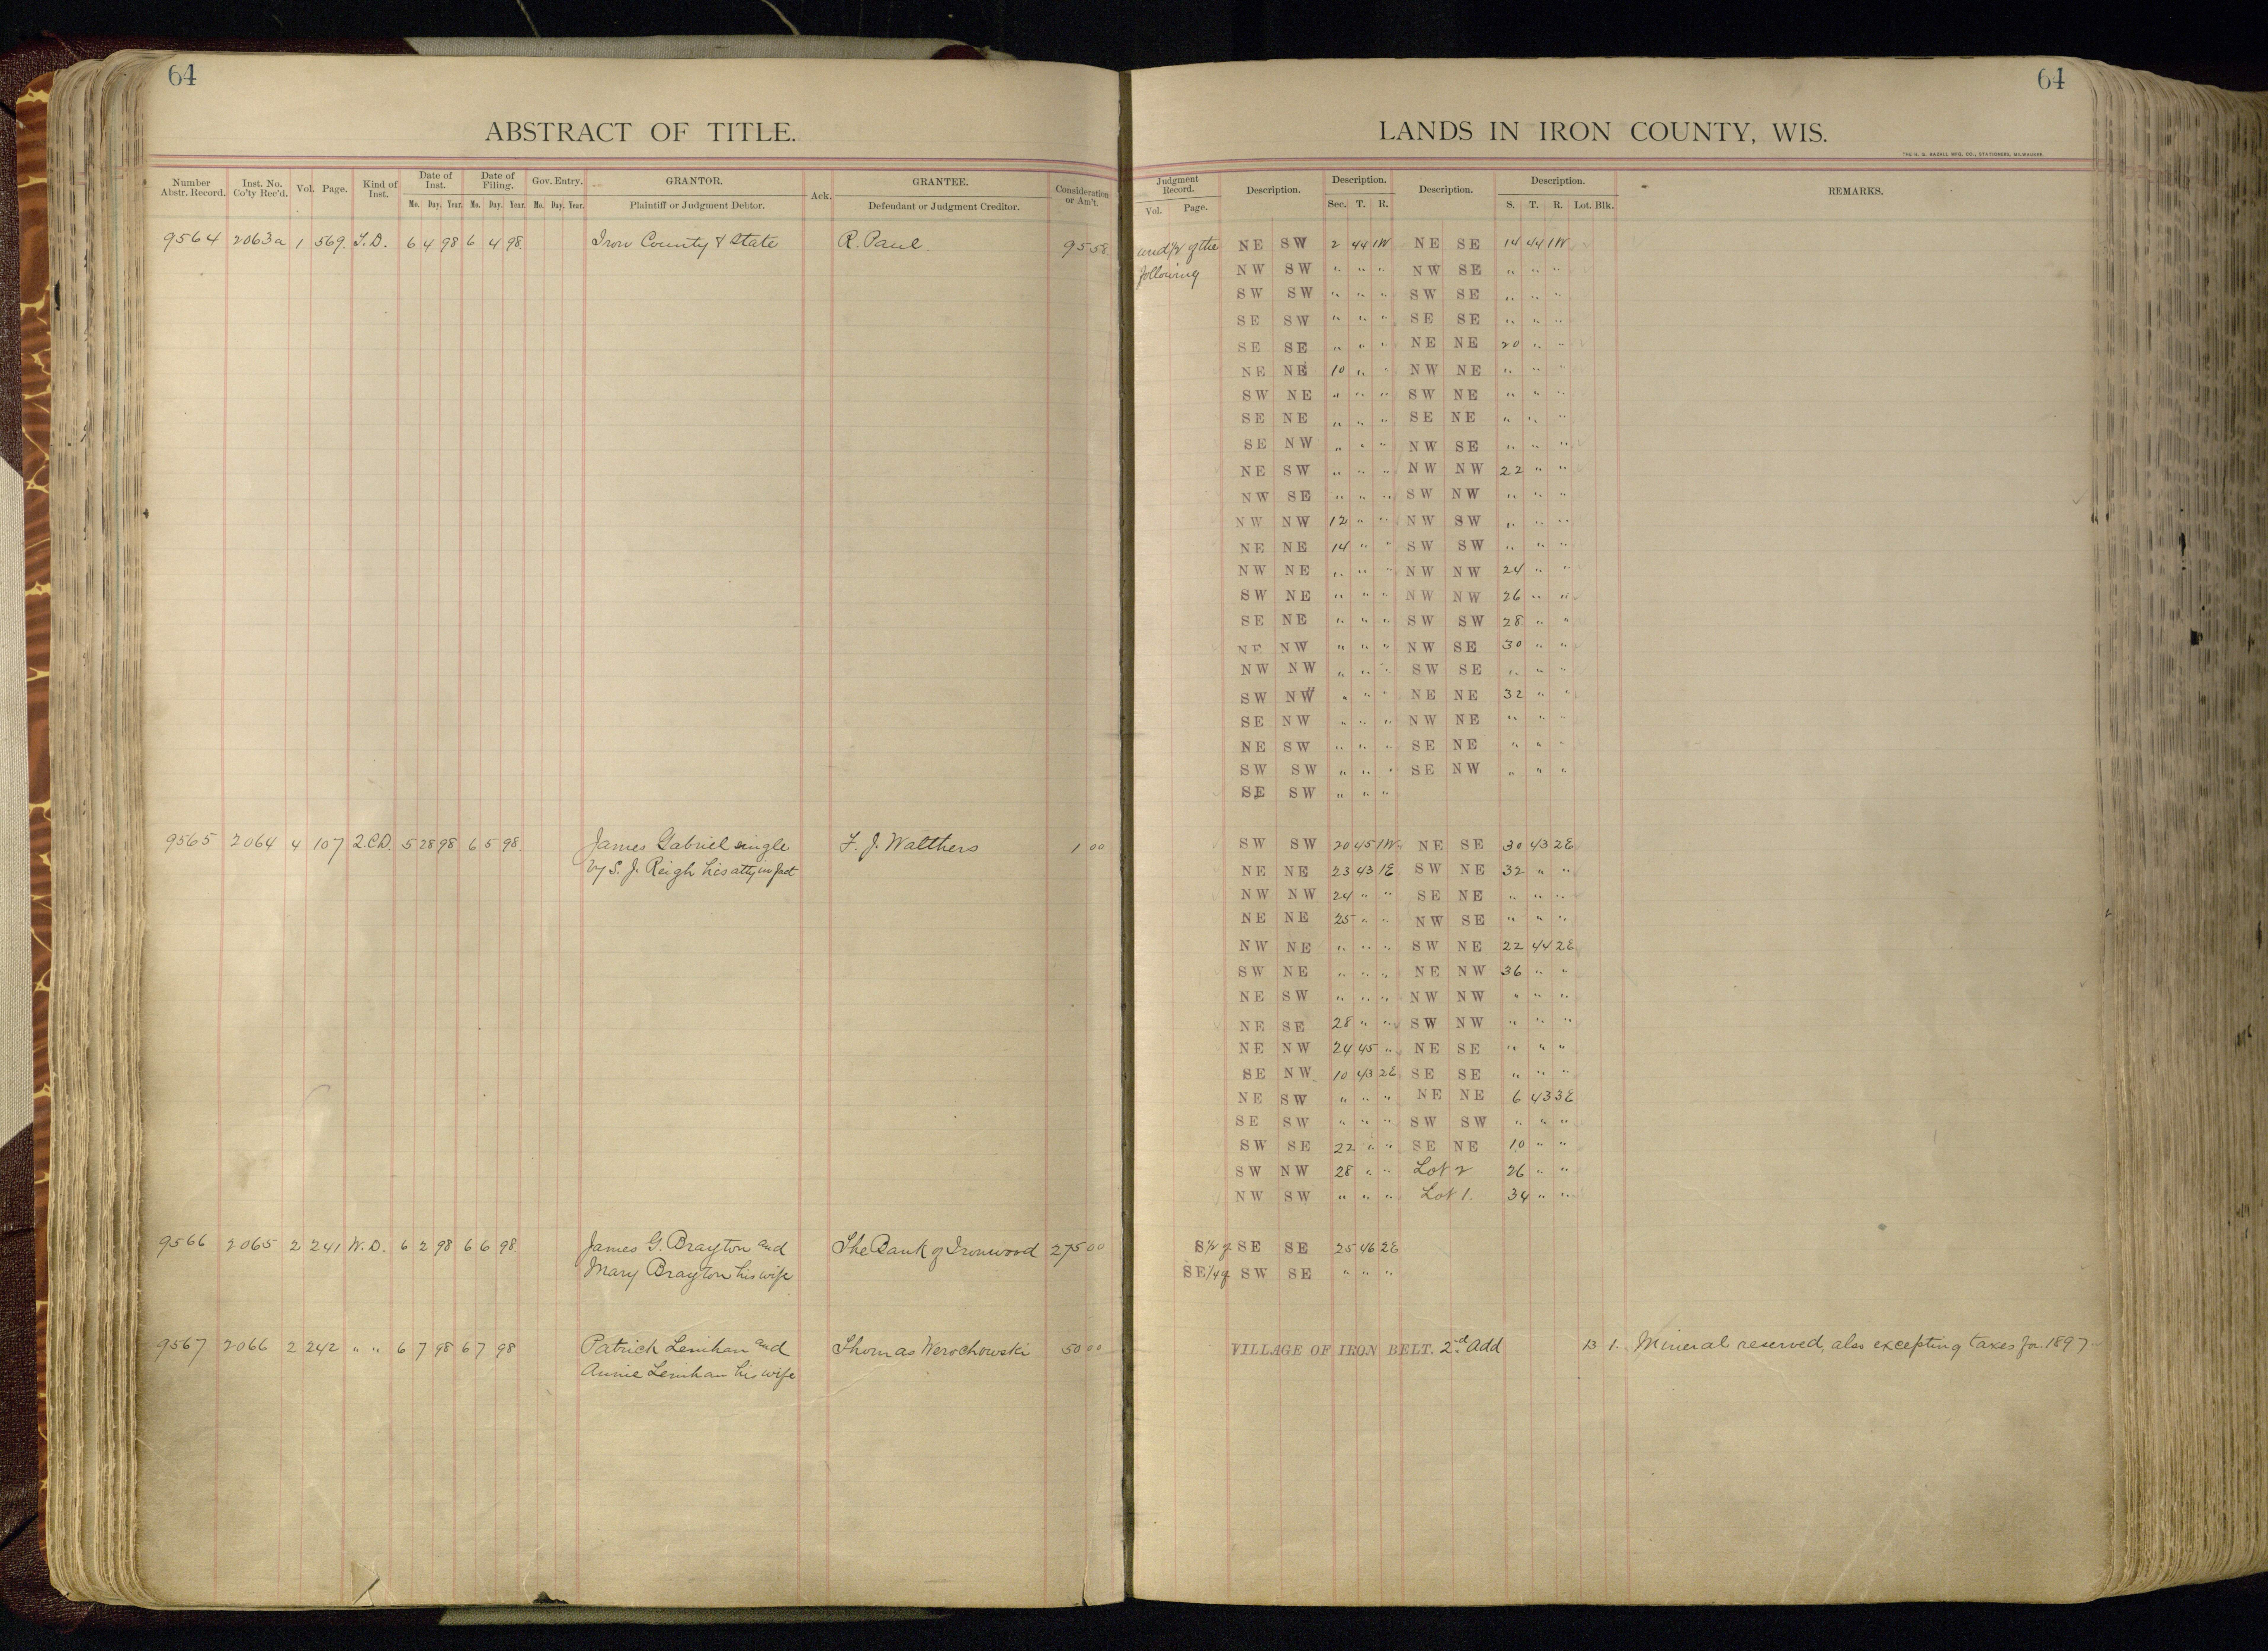 64
ABSTRACT OF TITLE.
Number Abstr. Record. Inst. No. Co'ty Rec'd. Vol. Page. Kind of Inst. Date of Inst. Date of Filing. Gov. Entry. GRANTOR. Ack. GRANTEE. Consideration or Am't.
Mo. Day. Year. Mo. Day. Year. Mo. Day. Year. Plaintiff or Judgment Debtor. Defendant or Judgment Creditor.
9564 2063a 1 569. T.D. 6 4 98 6 4 98. Iron County & State R. Paul. 95 58.
9565 2064 4 107 2.C.D. 5 28 98 6 5 98. James Gabriel single F. J. Walthers 1 00
by S. J. Reigh his atty in fact
9566 2065 2 241 W.D. 6 2 98 6 6 98 James G. Brayton and The Bank of Ironwood 275 00
Mary Brayton his wife
9567 2066 2 242 " " 6 7 98 6 7 98 Patrick Lenihan and Thomas Werochowski 50 00
Annie Lenihan his wife
64
LANDS IN IRON COUNTY, WIS.
THE H. G. RAZALL MFG. CO., STATIONERS, MILWAUKEE.
Judgment Record. Description. Description. Description. Description. REMARKS.
Vol. Page. Sec. T. R. S. T. R. Lot. Blk.
und 1/2 of the NE SW 2 44 1W NE SE 14 44 1W
following NW SW " " " NW SE " " "
SW SW " " " SW SE " " "
SE SW " " " SE SE " " "
SE SE " " " NE NE 20 " "
NE NE 10 " " NW NE " " "
SW NE " " " SW NE " " "
SE NE " " " SE NE " " "
SE NW " " " NW SE " " "
NE SW " " " NW NW 22 " "
NW SE " " " SW NW " " "
NW NW 12 " " NW SW " " "
NE NE 14 " " SW SW " " "
NW NE " " " NW NW 24 " "
SW NE " " " NW NW 26 " "
SE NE " " " SW SW 28 " "
NE NW " " " NW SE 30 " "
NW NW " " " SW SE " " "
SW NW " " " NE NE 32 " "
SE NW " " " NW NE " " "
NE SW " " " SE NE " " "
SW SW " " " SE NW " " "
SE SW " " "
SW SW 20 45 1W NE SE 30 43 2E
NE NE 23 43 1E SW NE 32 " "
NW NW 24 " " SE NE " " "
NE NE 25 " " NW SE " " "
NW NE " " " SW NE 22 44 2E
SW NE " " " NE NW 36 " "
NE SW " " " NW NW " " "
NE SE 28 " " SW NW " " "
NE NW 24 45 " NE SE " " "
SE NW 10 43 2E SE SE " " "
NE SW " " " NE NE 6 43 3E
SE SW " " " SW SW " " "
SW SE 22 " " SE NE 10 " "
SW NW 28 " " Lot 2 26 " "
NW SW " " " Lot 1. 34 " "
S 1/2 of SE SE 25 46 2E
SE 1/4 of SW SE " " "
VILLAGE OF IRON BELT. 2nd Add 13 1. Mineral reserved, also excepting taxes for 1897